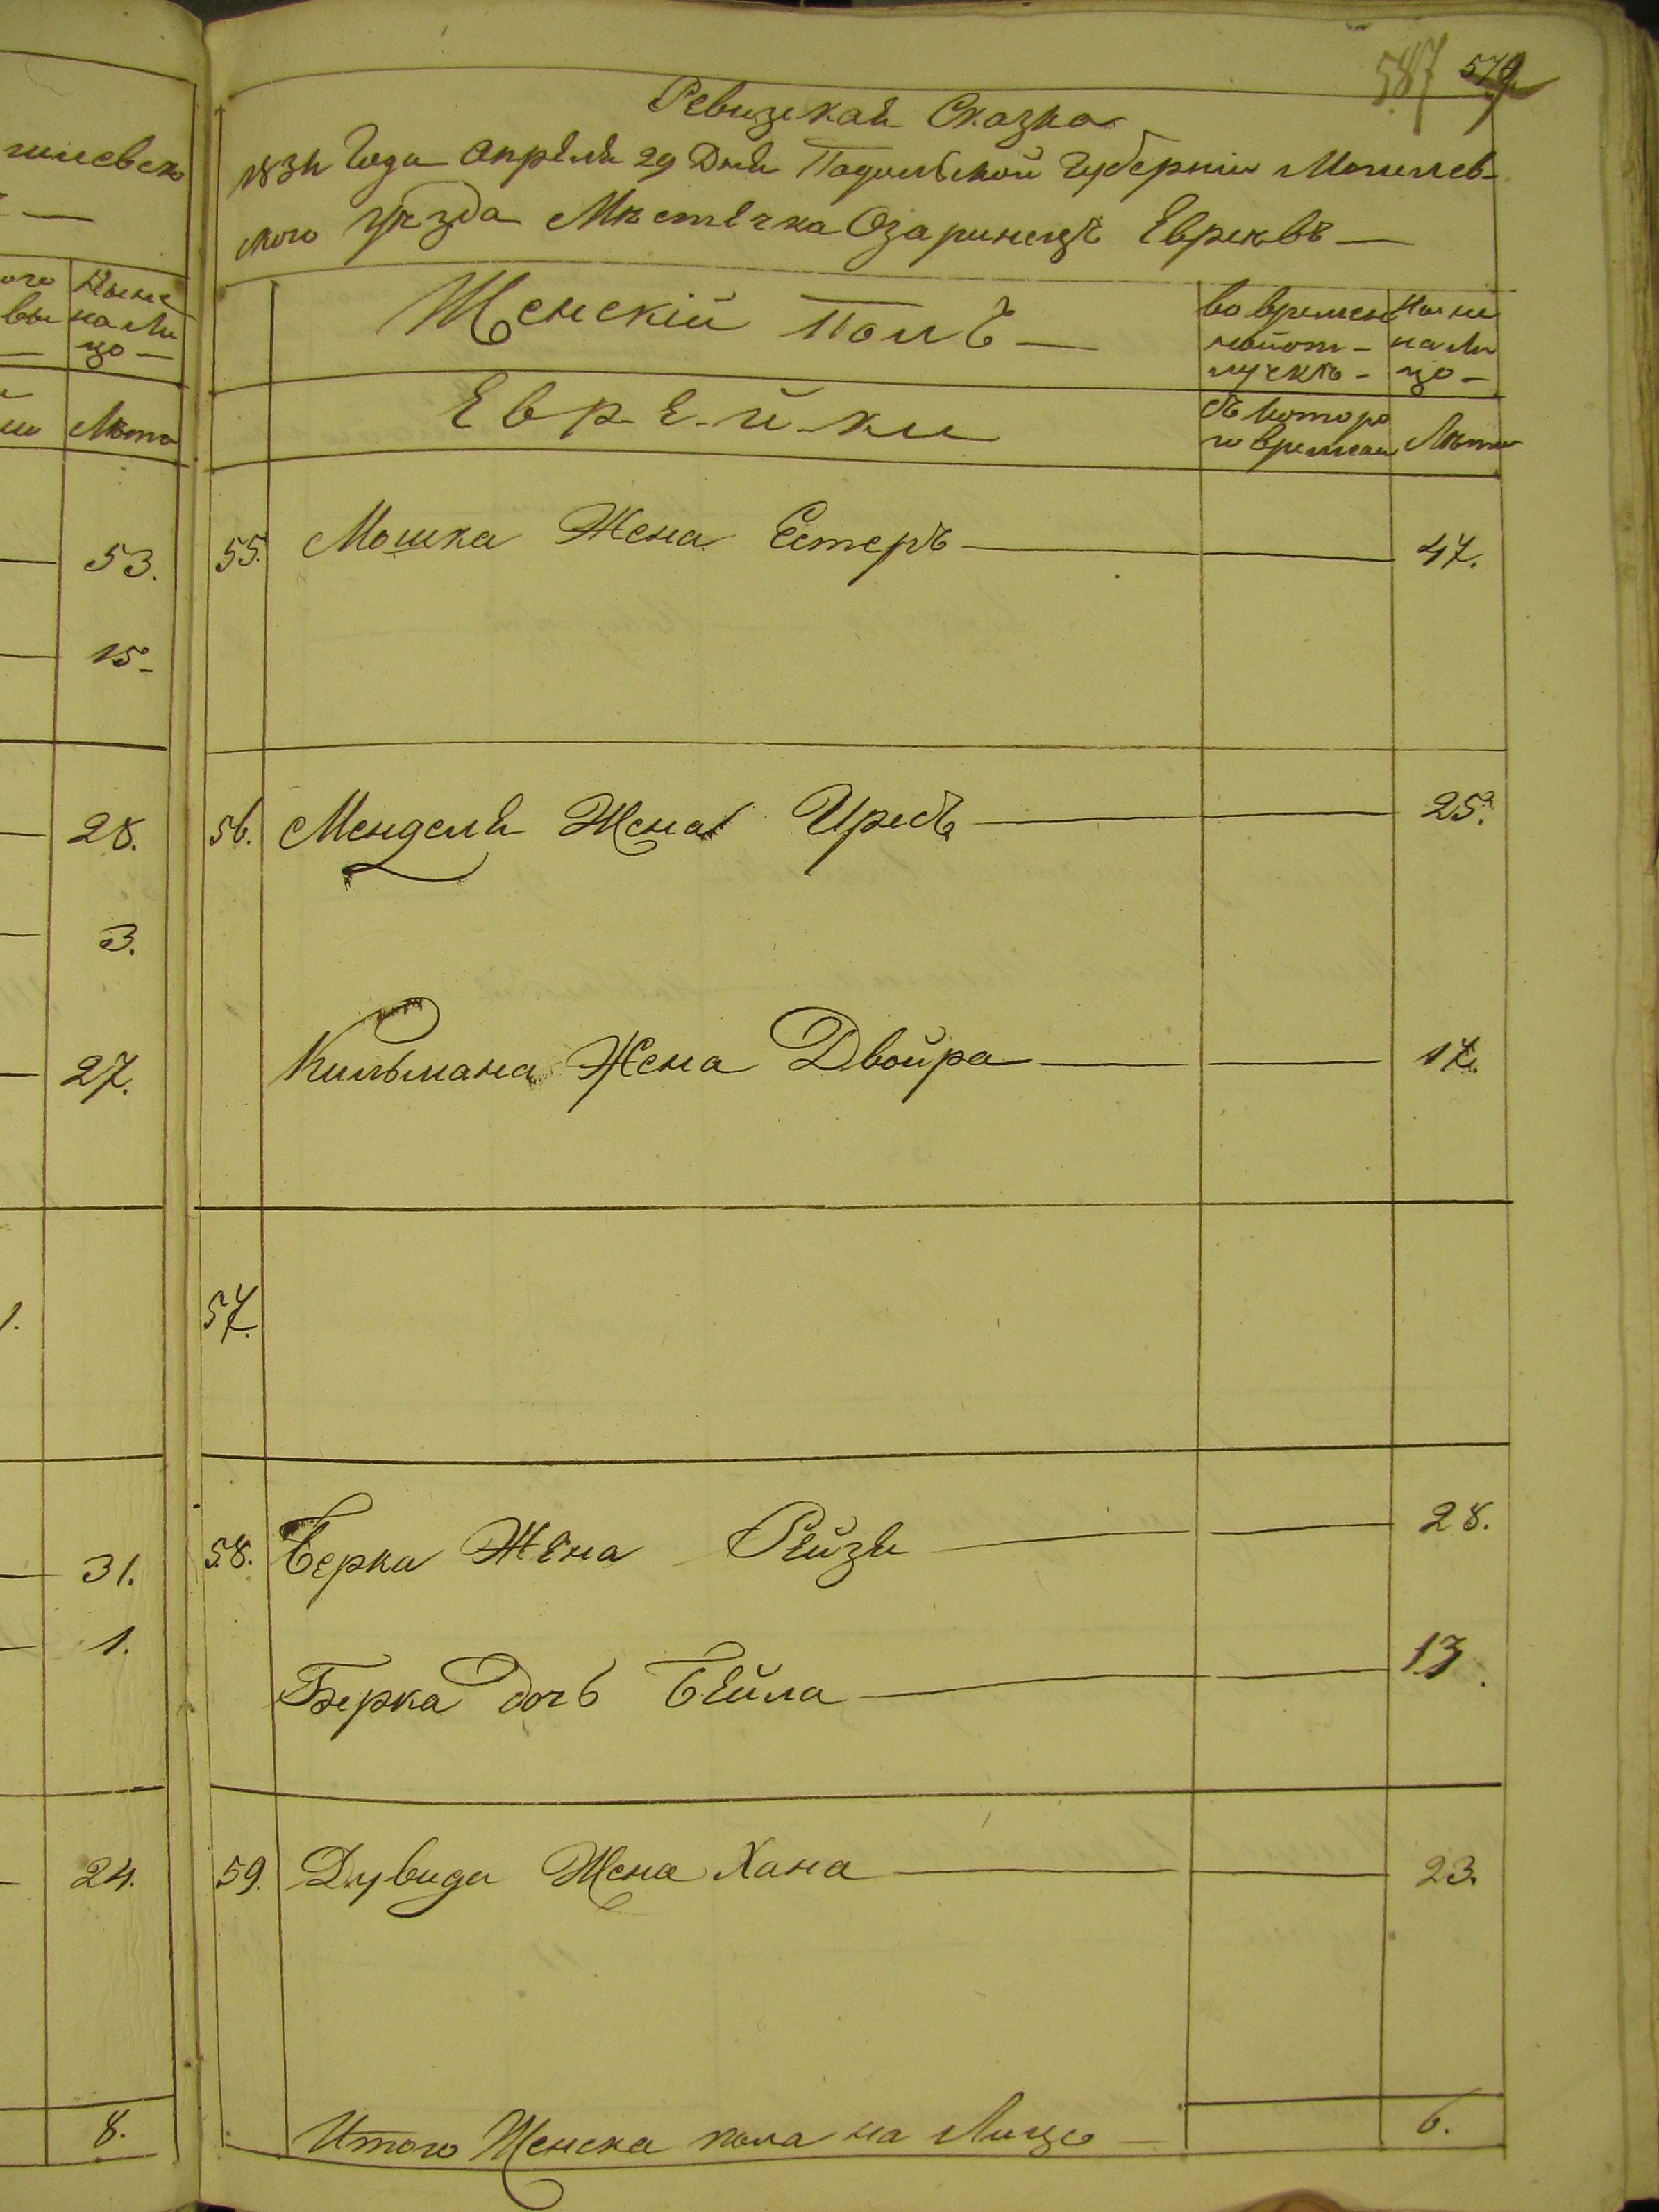 587 579
гилевско
ого Ныне
вы на ли
цо
Лѣта
53.
15
28.
3.
27.
1.
31.
1.
24.
8.
Ревизская Сказка
1834 Года Апреля 29 Дня Падольской Губернии Могилев-
ского Уезда Мѣстечка Озаринецъ Евреѣвъ
Женскій Полъ
во времен Ныне
ной от- на ли
лучкѣ- цо-
Е в р. е. й. ки
съ которо
го времени Лѣта
55. Мошка Жена Естеръ 47.
56. Менделя Жена Ирсъ 25.
Кильмана Жена Двойра 17.
57.
58. Берка Жена Рейзя 28.
Берка дочь Бейла 13.
59. Дувида Жена Хана 23.
Итого Женска пола на Лицо 6.